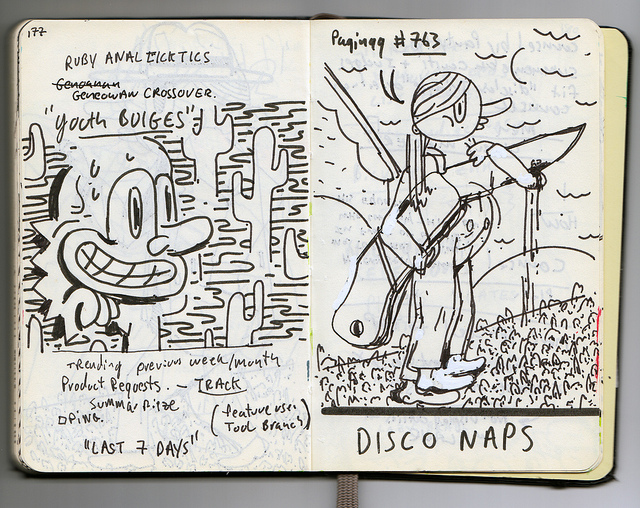 177
RUBY ANALEICKTICS
GENEOWAN CROSSOVER.
"youth BULGES"
TRENDING previous week/month
Product Requests. – TRACK
SUMMARIZE
PING.
(Feature use:
Tool Branch)
"LAST 7 DAYS"
Paginag #763
DISCO NAPS